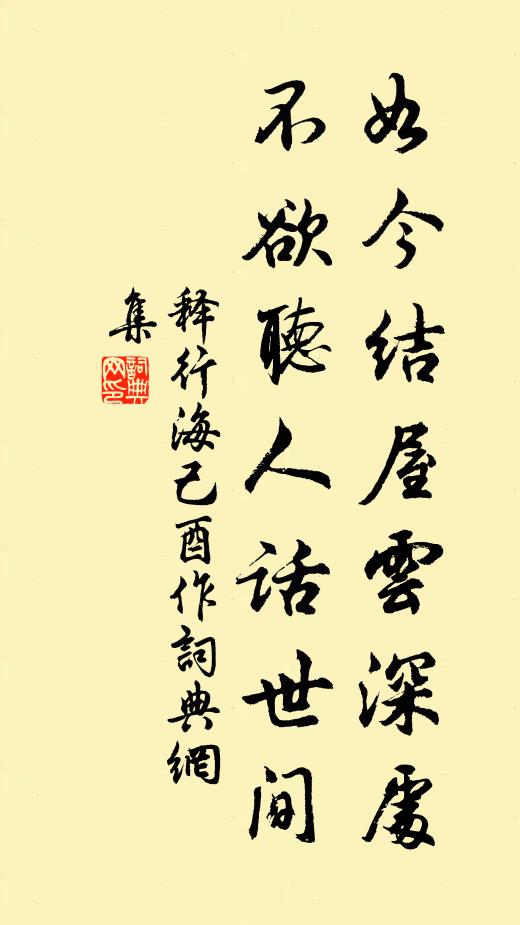 如今结屋雲深處
不欲聽人話世间
释行海己酉作詞典網
集
詞典
网印